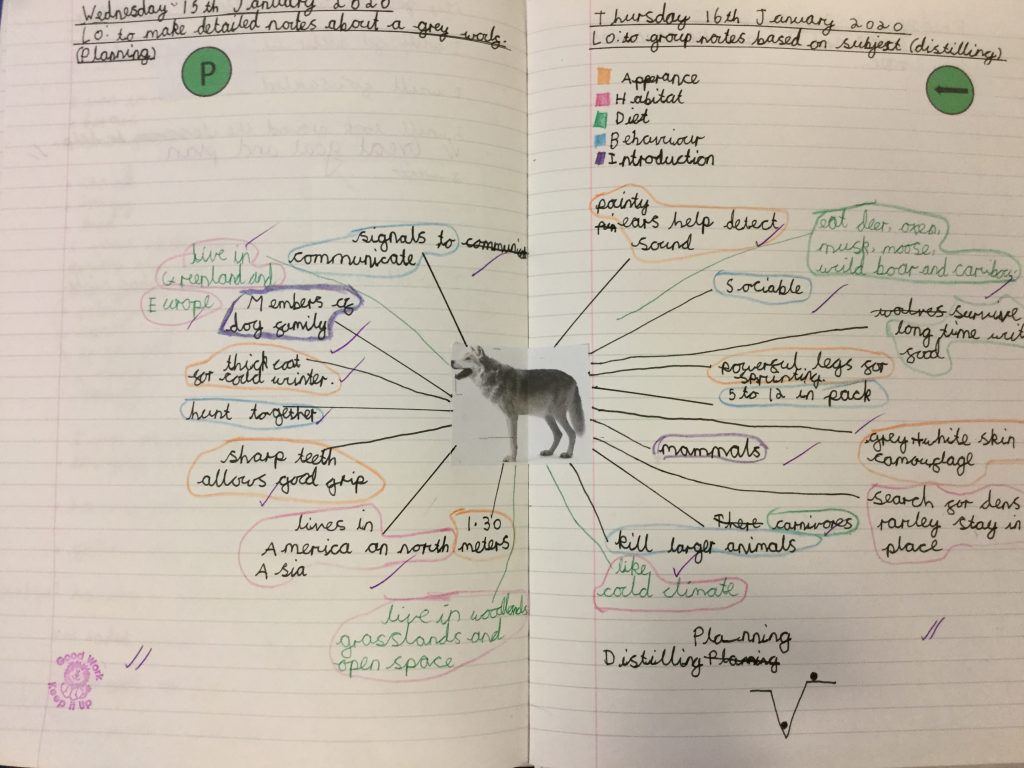 Wednesday 15th January 2020
LO: to make detailed notes about a grey wolf.
(Planning)
P
signals to communicate
communicate
live in
Greenland and
Europe
Members of
dog family
thick coat
for could winter.
hunt together
sharp teeth
allows good grip
lives in
America an north
Asia
1.30
meters
live in woodlands
grasslands and
open space
Good Work
Keep it up
Thursday 16th January 2020
LO: to group notes based on subject (distilling)
Apperance
Habitat
Diet
Behaviour
Introduction
pointy
ears help detect
sound
eat deer, oxen,
musk, moose,
wild boar and caribou.
Sociable
survive
long time writ
food
powerful legs for
sprinting.
5 to 12 in pack
grey+white skin
camouflage
mammals
search for dens
rarley stay in
place
There carnivores
kill larger animals
like
could climate
Planning
Distilling Planning